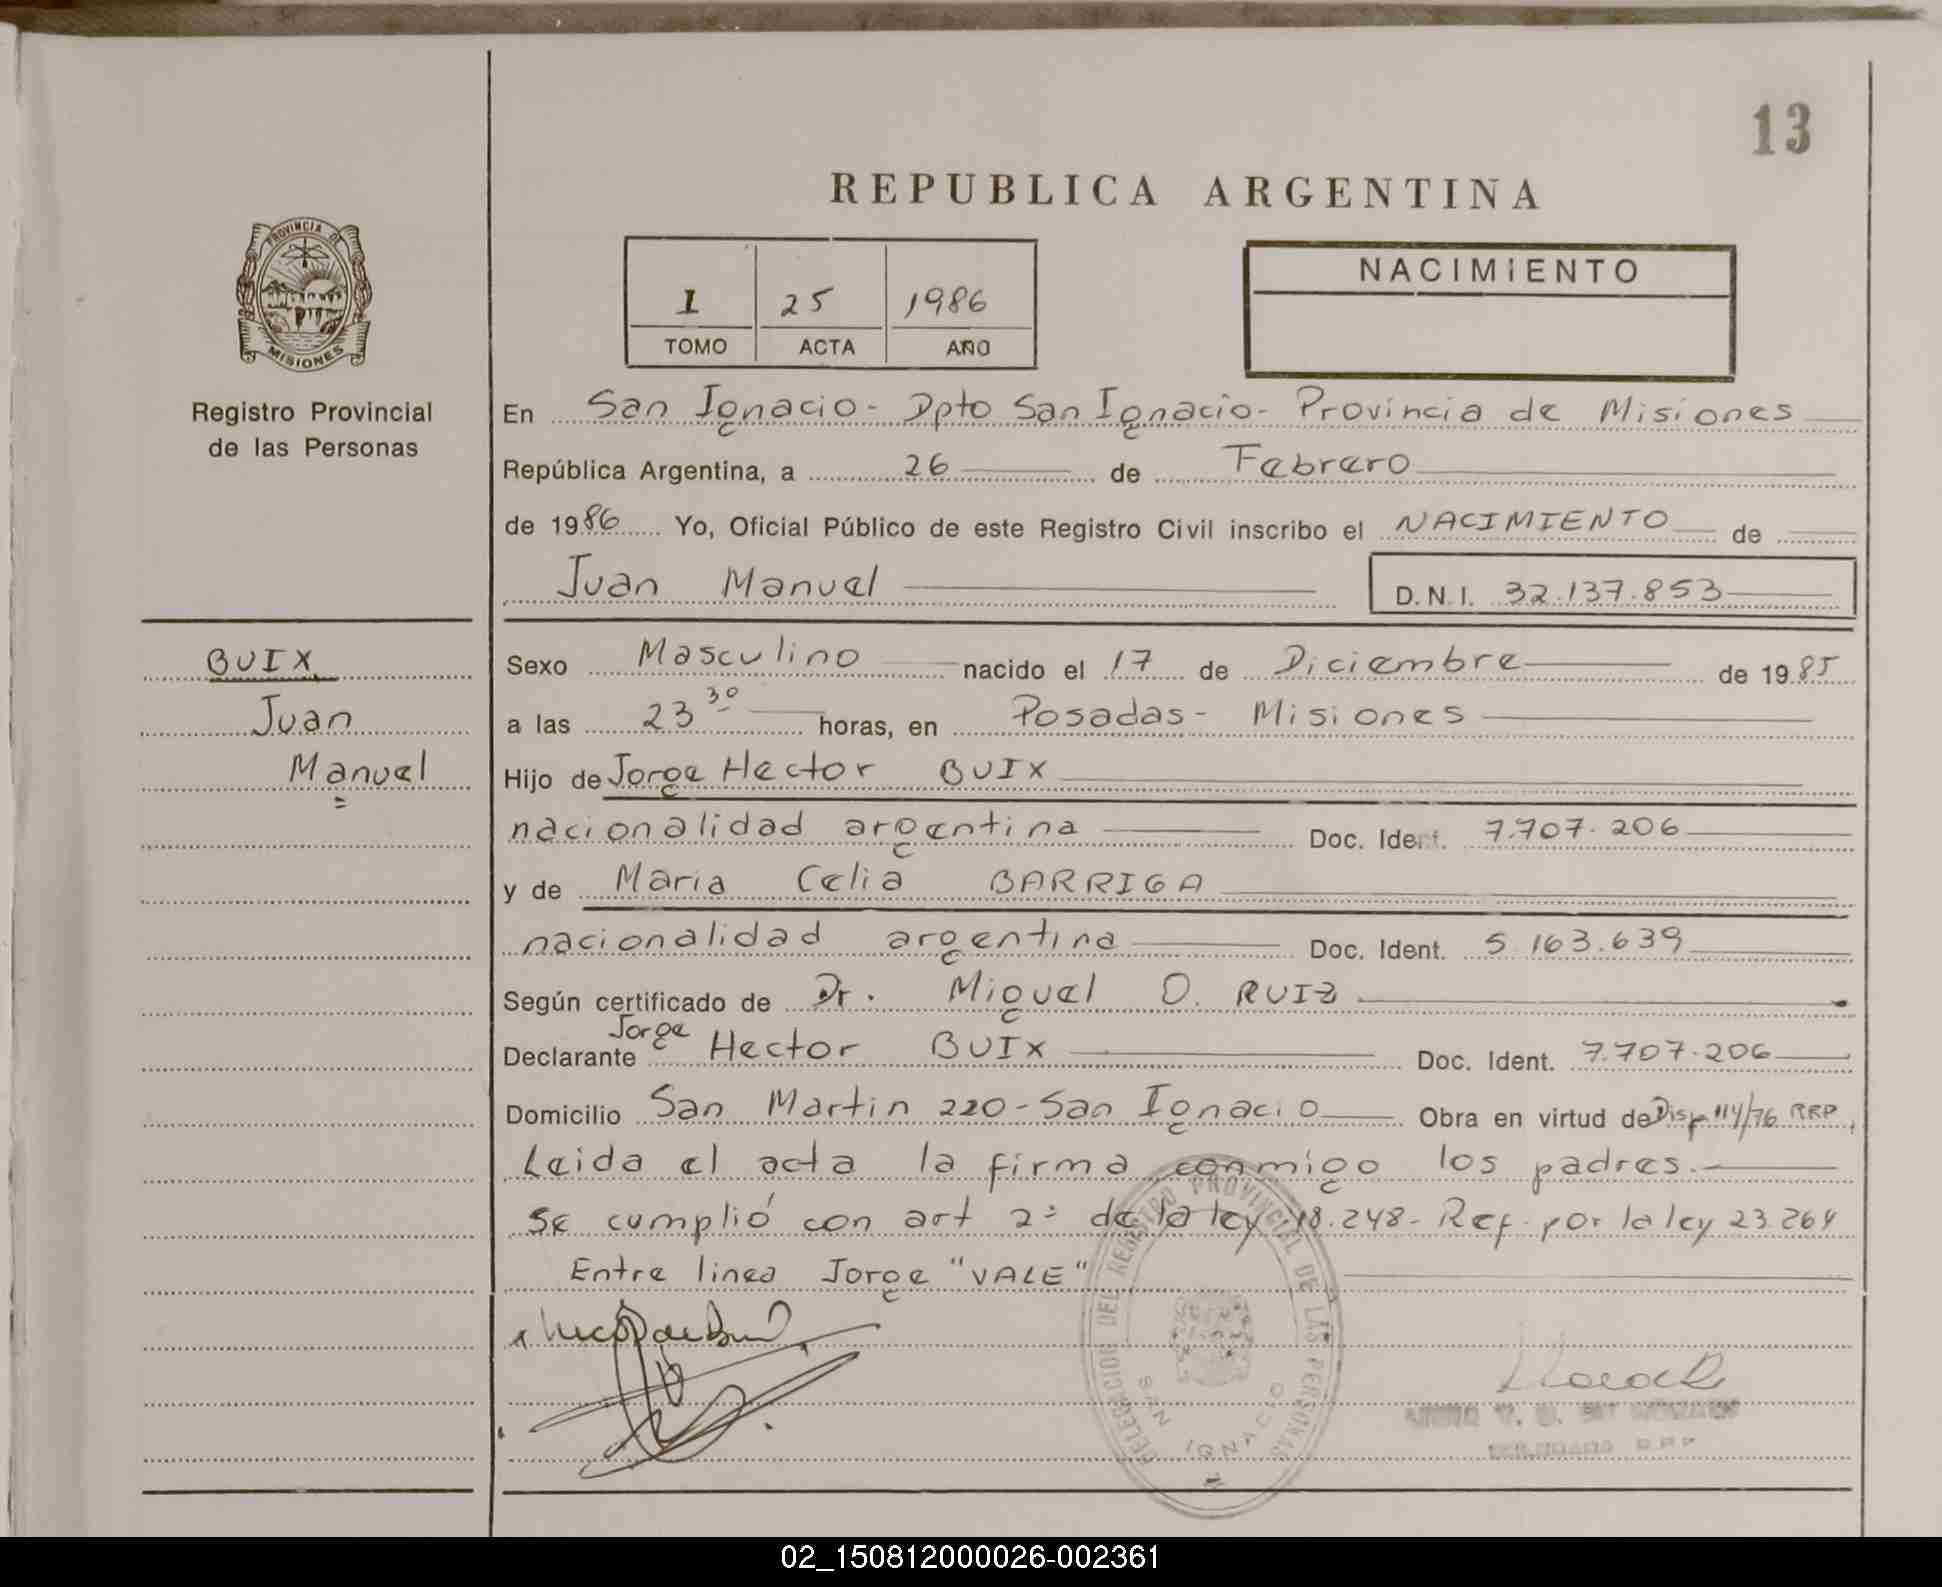 13
REPUBLICA ARGENTINA
PROVINCIA DE
MISIONES
Registro Provincial
de las Personas
I 25 1986
TOMO ACTA AÑO
NACIMIENTO
En San Ignacio - Dpto San Ignacio - Provincia de Misiones
República Argentina, a 26 de Febrero
de 1986 Yo, Oficial Público de este Registro Civil inscribo el NACIMIENTO de
Juan Manuel D.N.I. 32.137.853
BUIX
Juan
Manuel
Sexo Masculino nacido el 17 de Diciembre de 1985
a las 23 30 horas, en Posadas - Misiones
Hijo de Jorge Hector BUIX
nacionalidad argentina Doc. Ident. 7.707.206
y de Maria Celia BARRIGA
nacionalidad argentina Doc. Ident. 5.163.639
Según certificado de Dr. Miguel O. RUIZ
Jorge
Declarante Hector BUIX Doc. Ident. 7.707.206
Domicilio San Martin 220 - San Ignacio Obra en virtud de Disp 114/76 RRP
Leida el acta la firma conmigo los padres.
Se cumplió con art 2º de la ley 18.248 - Ref. por la ley 23.264
Entre linea Jorge "VALE"
DELEGACION DEL REGISTRO PROVINCIAL DE LAS PERSONAS
SAN IGNACIO
02_150812000026-002361